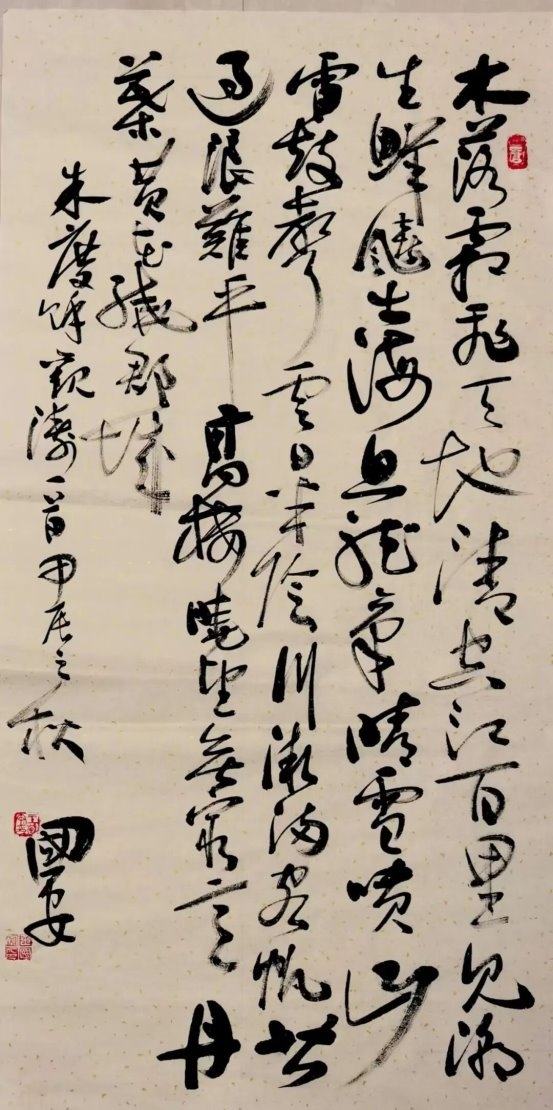 木落霜飛天地清空江百里見潮
生鮮飆出海魚龍氣晴雪噴山
雷鼓聲雲日半陰川漸滿客帆皆
過浪難平高樓曉望無窮意丹
葉黃花繞郡城
朱慶餘觀濤一首甲辰之秋
國